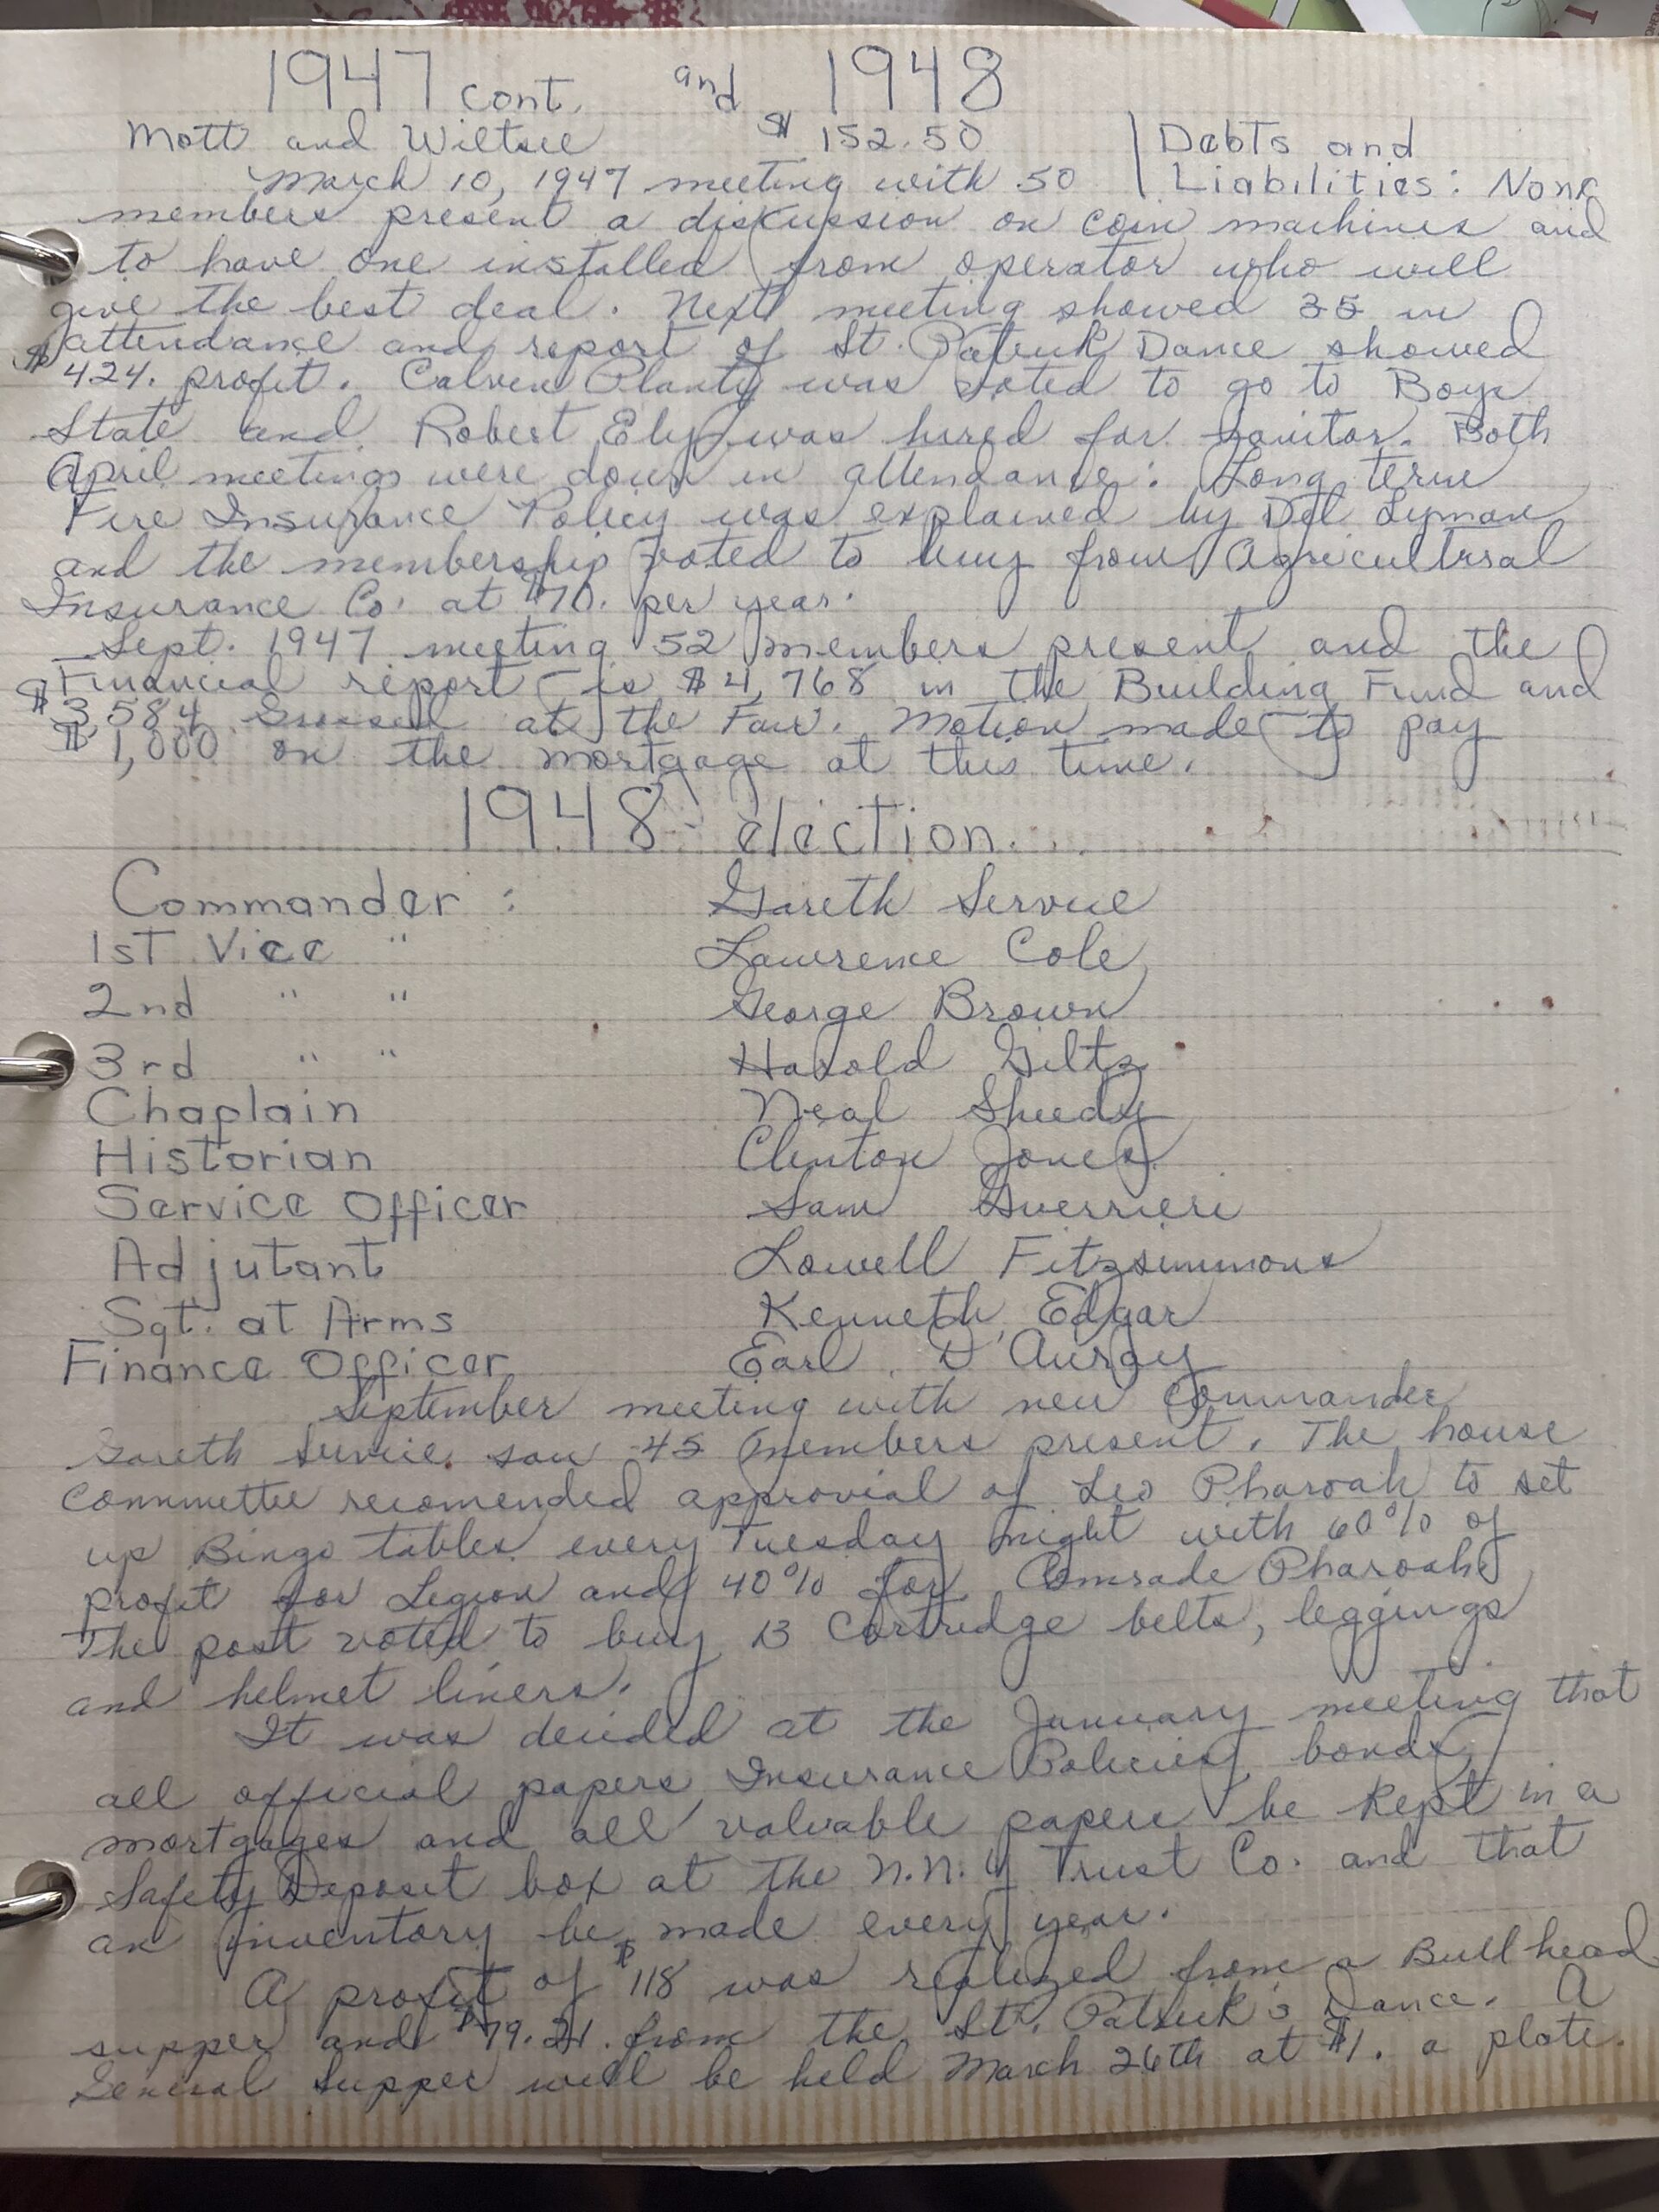 1947 cont. and 1948
Mott and Wiltsee $152.50 | Debts and
March 10, 1947 meeting with 50 | Liabilities: None
members present a diskussion on coin machines and
to have one installed from operator who will
give the best deal. Next meeting showed 35 in
attendance and report of St. Patrick Dance showed
$424. profit. Calvin Planty was voted to go to Boys
State and Robert Ely was hired for Janitor. Both
April meetings were down in attendance. Long term
Fire Insurance Policy was explained by Del Lyman
and the membership voted to buy from Agricultural
Insurance Co. at $70. per year.
Sept. 1947 meeting 52 members present and the
Financial report is $4,768 in the Building Fund and
$3,584 Grossed at the Fair. Motion made to pay
$1,000 on the mortgage at this time.
1948 - election.
Commander : Gareth Service
1st Vice " Lawrence Cole
2nd " " George Brown
3rd " " Harold Giltz
Chaplain Neal Sheedy
Historian Clinton Jones
Service Officer Sam Guerrieri
Adjutant Lowell Fitzsimmons
Sgt. at Arms Kenneth Edgar
Finance Officer Earl D'Auray
September meeting with new Commander
Gareth Service saw 45 members present. The house
committee recomended approvial of Leo Pharoah to set
up Bingo tables every Tuesday night with 60% of
profit for Legion and 40% for Comrade Pharoah.
The post voted to buy 13 Cartridge belts, leggings
and helmet liners.
It was decided at the January meeting that
all official papers, Insurance Policies, bonds,
mortgages and all valuable papers be kept in a
Safety Deposit box at the N.N.Y Trust Co. and that
an inventory be made every year.
A profit of $118 was realized from a Bullhead
supper and $79.21. from the St. Patrick's Dance. A
General supper will be held March 26th at $1. a plate.